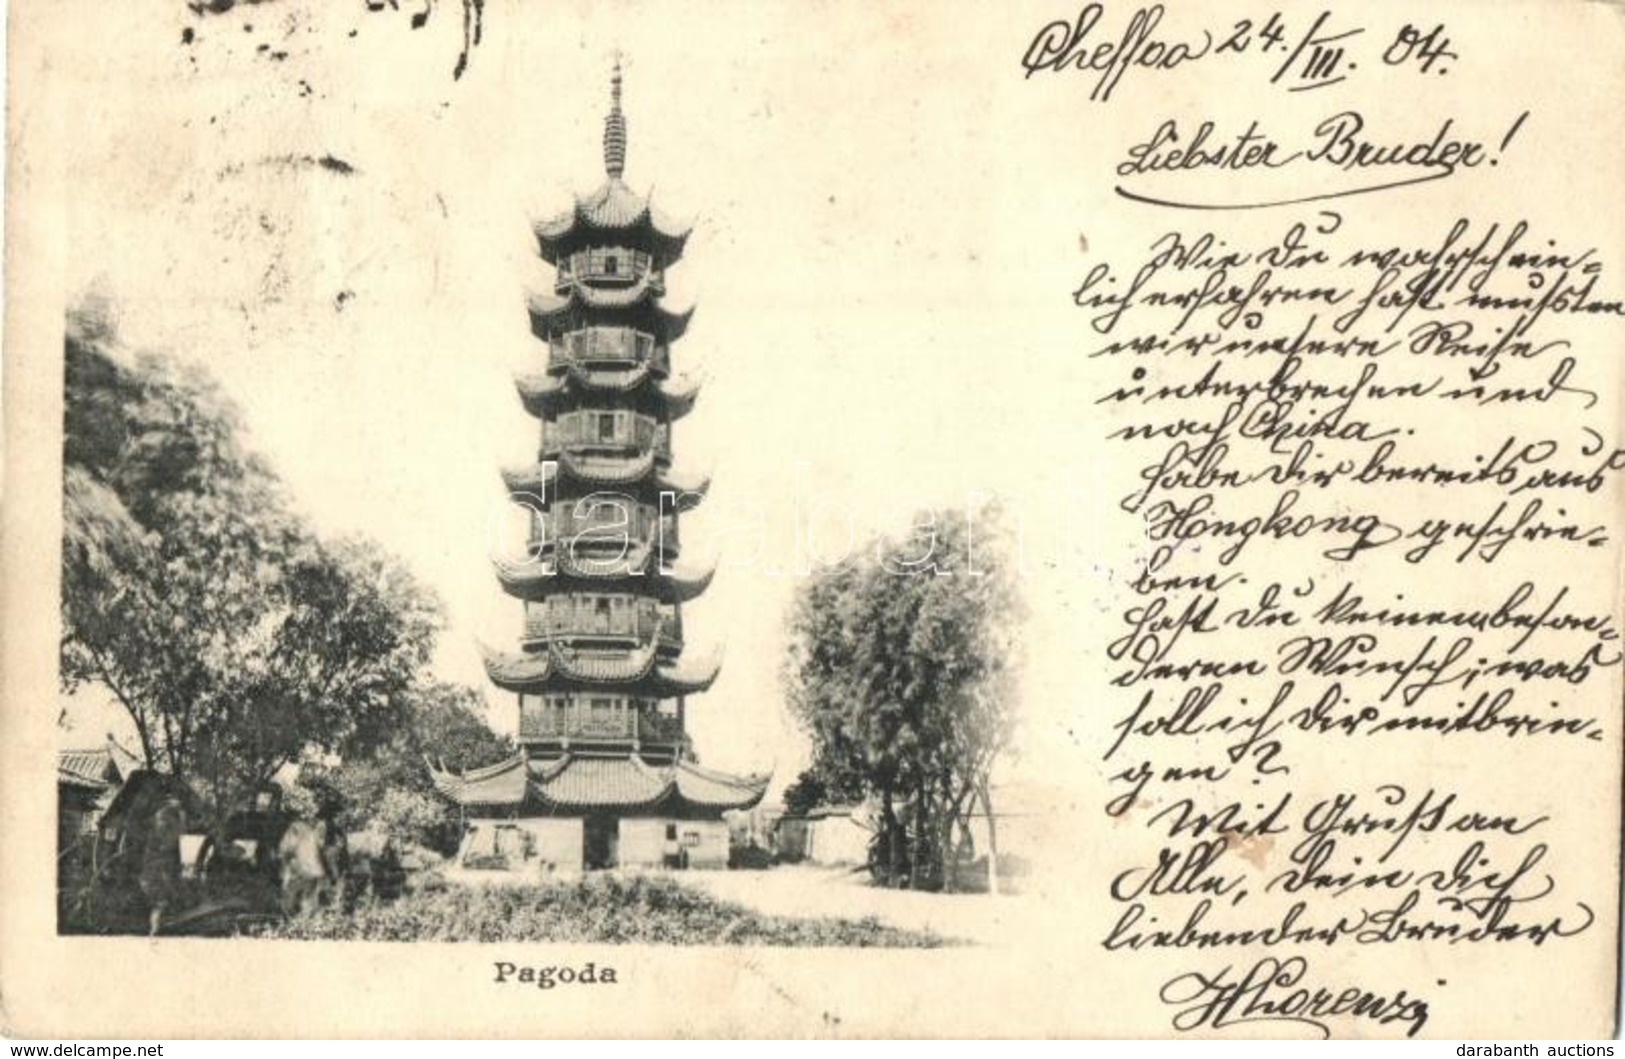 Cheffoo 24./III. 04.
Liebster Bruder!
Wie Du wahrschein=
lich erfahren hast mussten
wir unsere Reise
unterbrechen und
nach China.
Habe Dir bereits aus
Hongkong geschrie=
ben.
Hast Du keinen beson=
deren Wunsch; was
soll ich Dir mitbrin=
gen?
Mit Gruß an
Alle, Dein Dich
liebender Bruder
Pagoda
darabanth
darabanth auctions